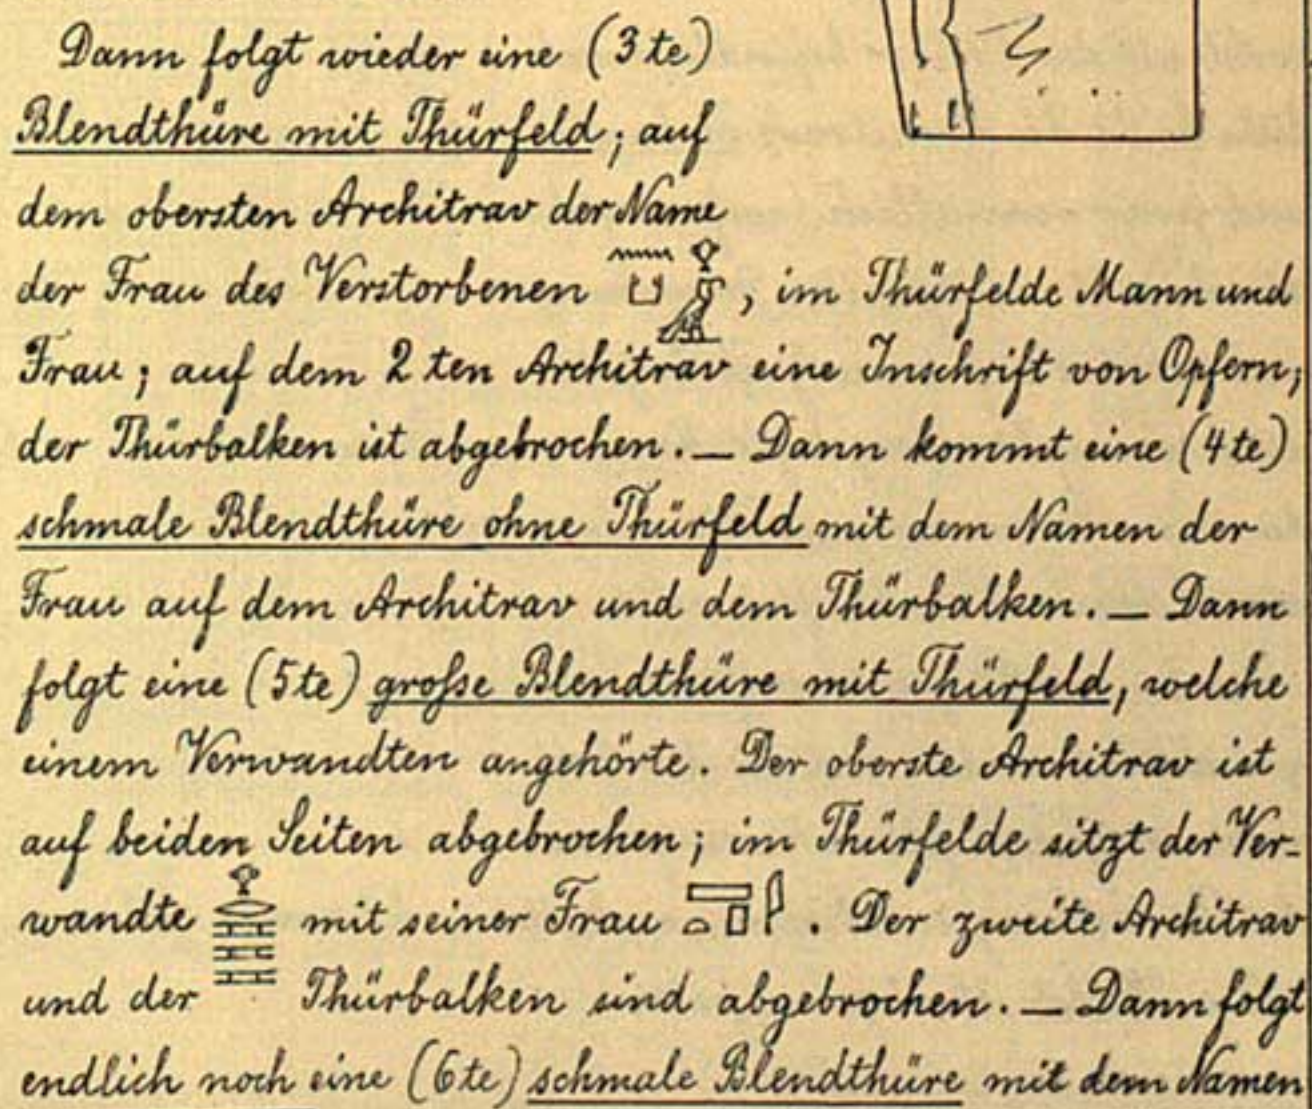 Dann folgt wieder eine (3te)
Blendthüre mit Thürfeld; auf
dem obersten Architrav der Name
der Frau des Verstorbenen , im Thürfelde Mann und
Frau; auf dem 2ten Architrav eine Inschrift von Opfern;
der Thürbalken ist abgebrochen. — Dann kommt eine (4te)
schmale Blendthüre ohne Thürfeld mit dem Namen der
Frau auf dem Architrav und dem Thürbalken. — Dann
folgt eine (5te) große Blendthüre mit Thürfeld, welche
einem Verwandten angehörte. Der oberste Architrav ist
auf beiden Seiten abgebrochen; im Thürfelde sitzt der Ver-
wandte mit seiner Frau . Der zweite Architrav
und der Thürbalken sind abgebrochen. — Dann folgt
endlich noch eine (6te) schmale Blendthüre mit dem Namen